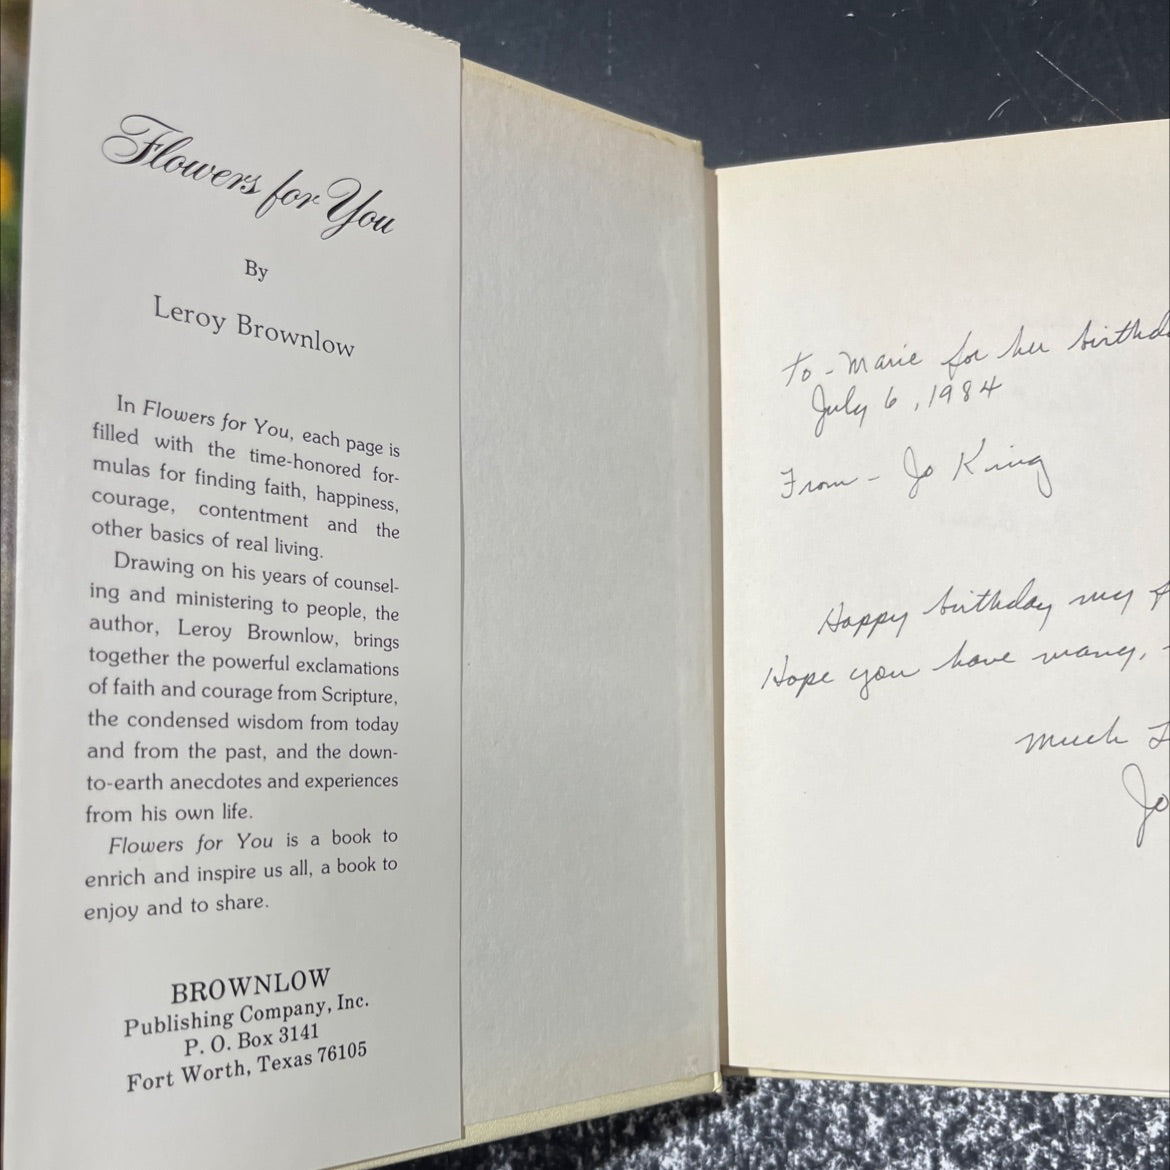 Flowers for You
By
Leroy Brownlow
In Flowers for You, each page is
filled with the time-honored for-
mulas for finding faith, happiness,
courage, contentment and the
other basics of real living.
Drawing on his years of counsel-
ing and ministering to people, the
author, Leroy Brownlow, brings
together the powerful exclamations
of faith and courage from Scripture,
the condensed wisdom from today
and from the past, and the down-
to-earth anecdotes and experiences
from his own life.
Flowers for You is a book to
enrich and inspire us all, a book to
enjoy and to share.
BROWNLOW
Publishing Company, Inc.
P. O. Box 3141
Fort Worth, Texas 76105
To - Marie for her birthd
July 6, 1984
From - Jo King
Happy birthday my
Hope you have many,
Much
Jo